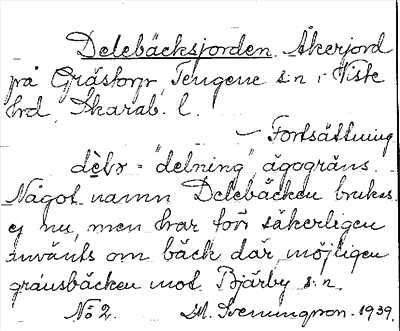 Delebäcksjorden. Åkerjord
på Grästorp, Tengene s:n i Viste
hrd, Skarab. l.
— Fortsättning
"delning", ägogräns.
Något namn Delebäcken brukas
ej nu, men har förr säkerligen
använts om bäck där, möjligen
gränsbäcken mot Bjärby s:n.
No 2. M. Svenungsson. 1939.